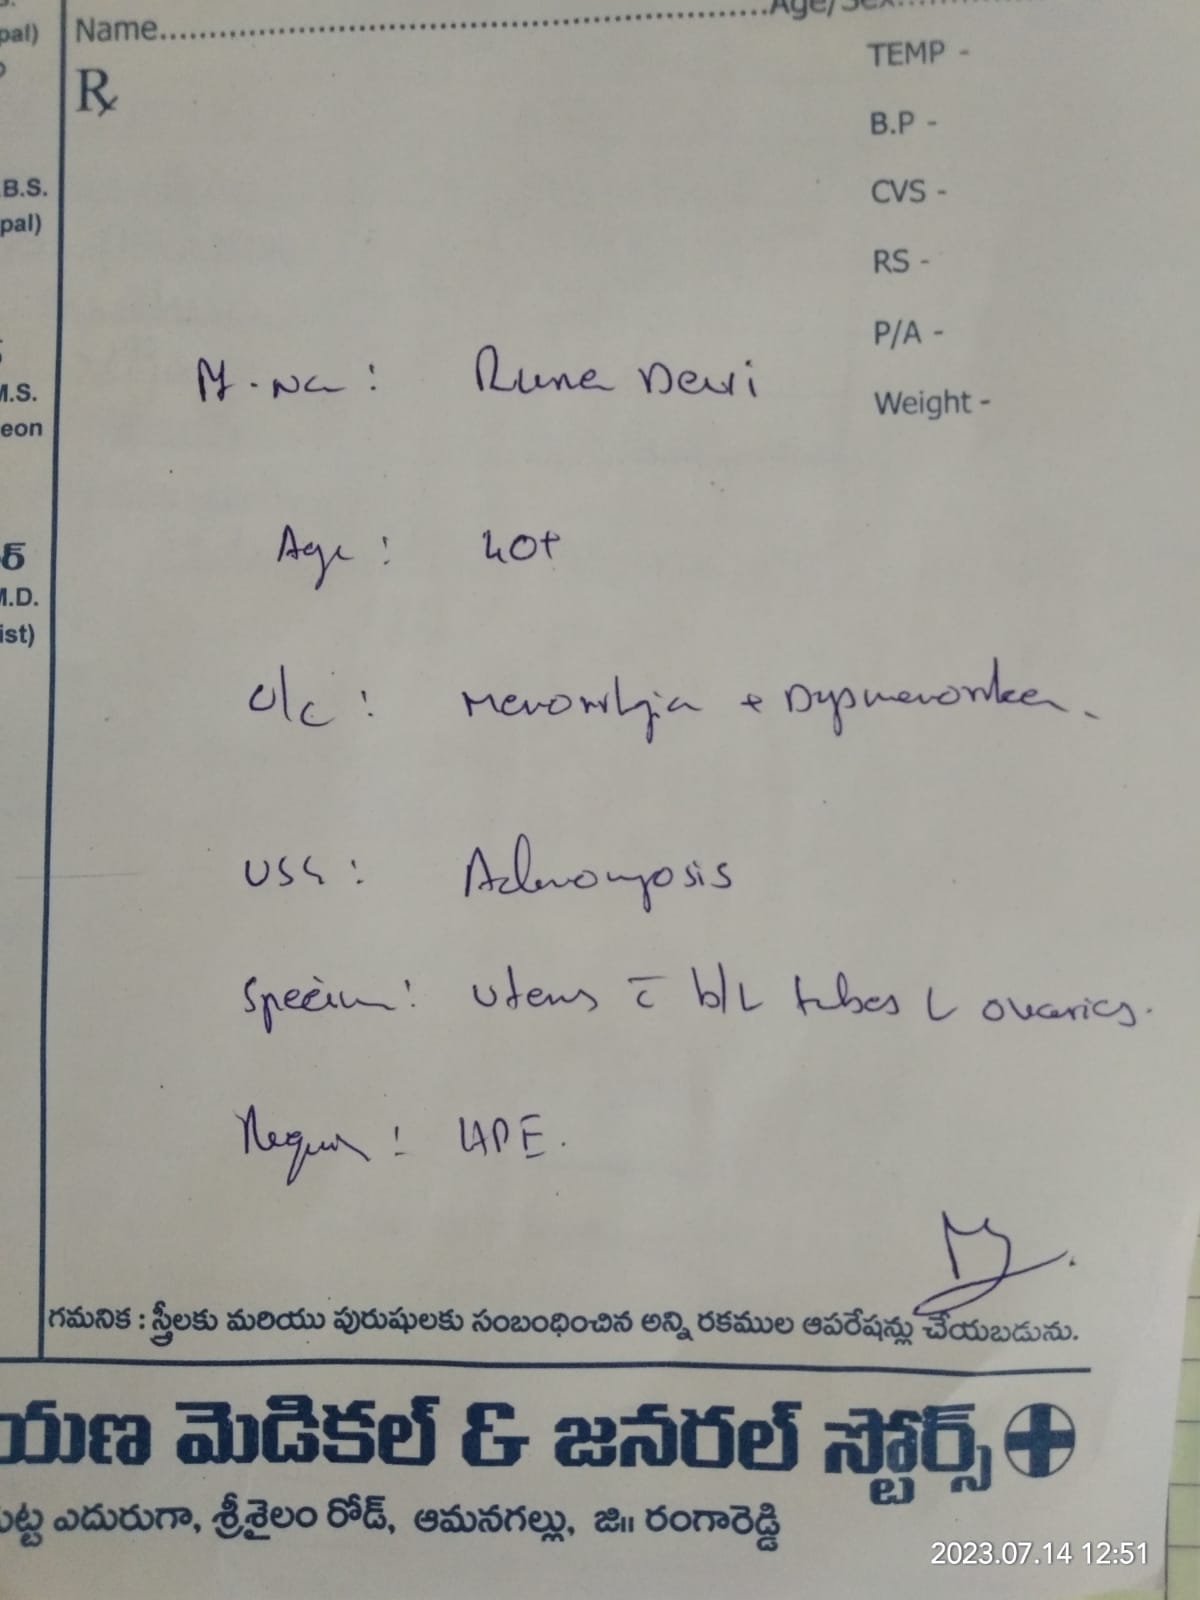 pal)
Name.......................................Age/Sex..........
TEMP -
Rx
B.P -
B.S.
CVS -
pal)
RS -
P/A -
Pt. Na : Runa Devi
M.S.
Weight -
eon
Age : 40+
ర్
M.D.
ist)
C/c : Menorrhgia + Dysmenorrhea.
USG : Adenomyosis
Specim : Uterus c̄ b/L tubes & ovaries.
HPE.
గమనిక : స్త్రీలకు మరియు పురుషులకు సంబంధించిన అన్ని రకముల ఆపరేషన్లు చేయబడును.
యణ మెడికల్ & జనరల్ స్టోర్స్
ఎదురుగా, శ్రీశైలం రోడ్, ఆమనగల్లు, జి॥ రంగారెడ్డి
2023.07.14 12:51